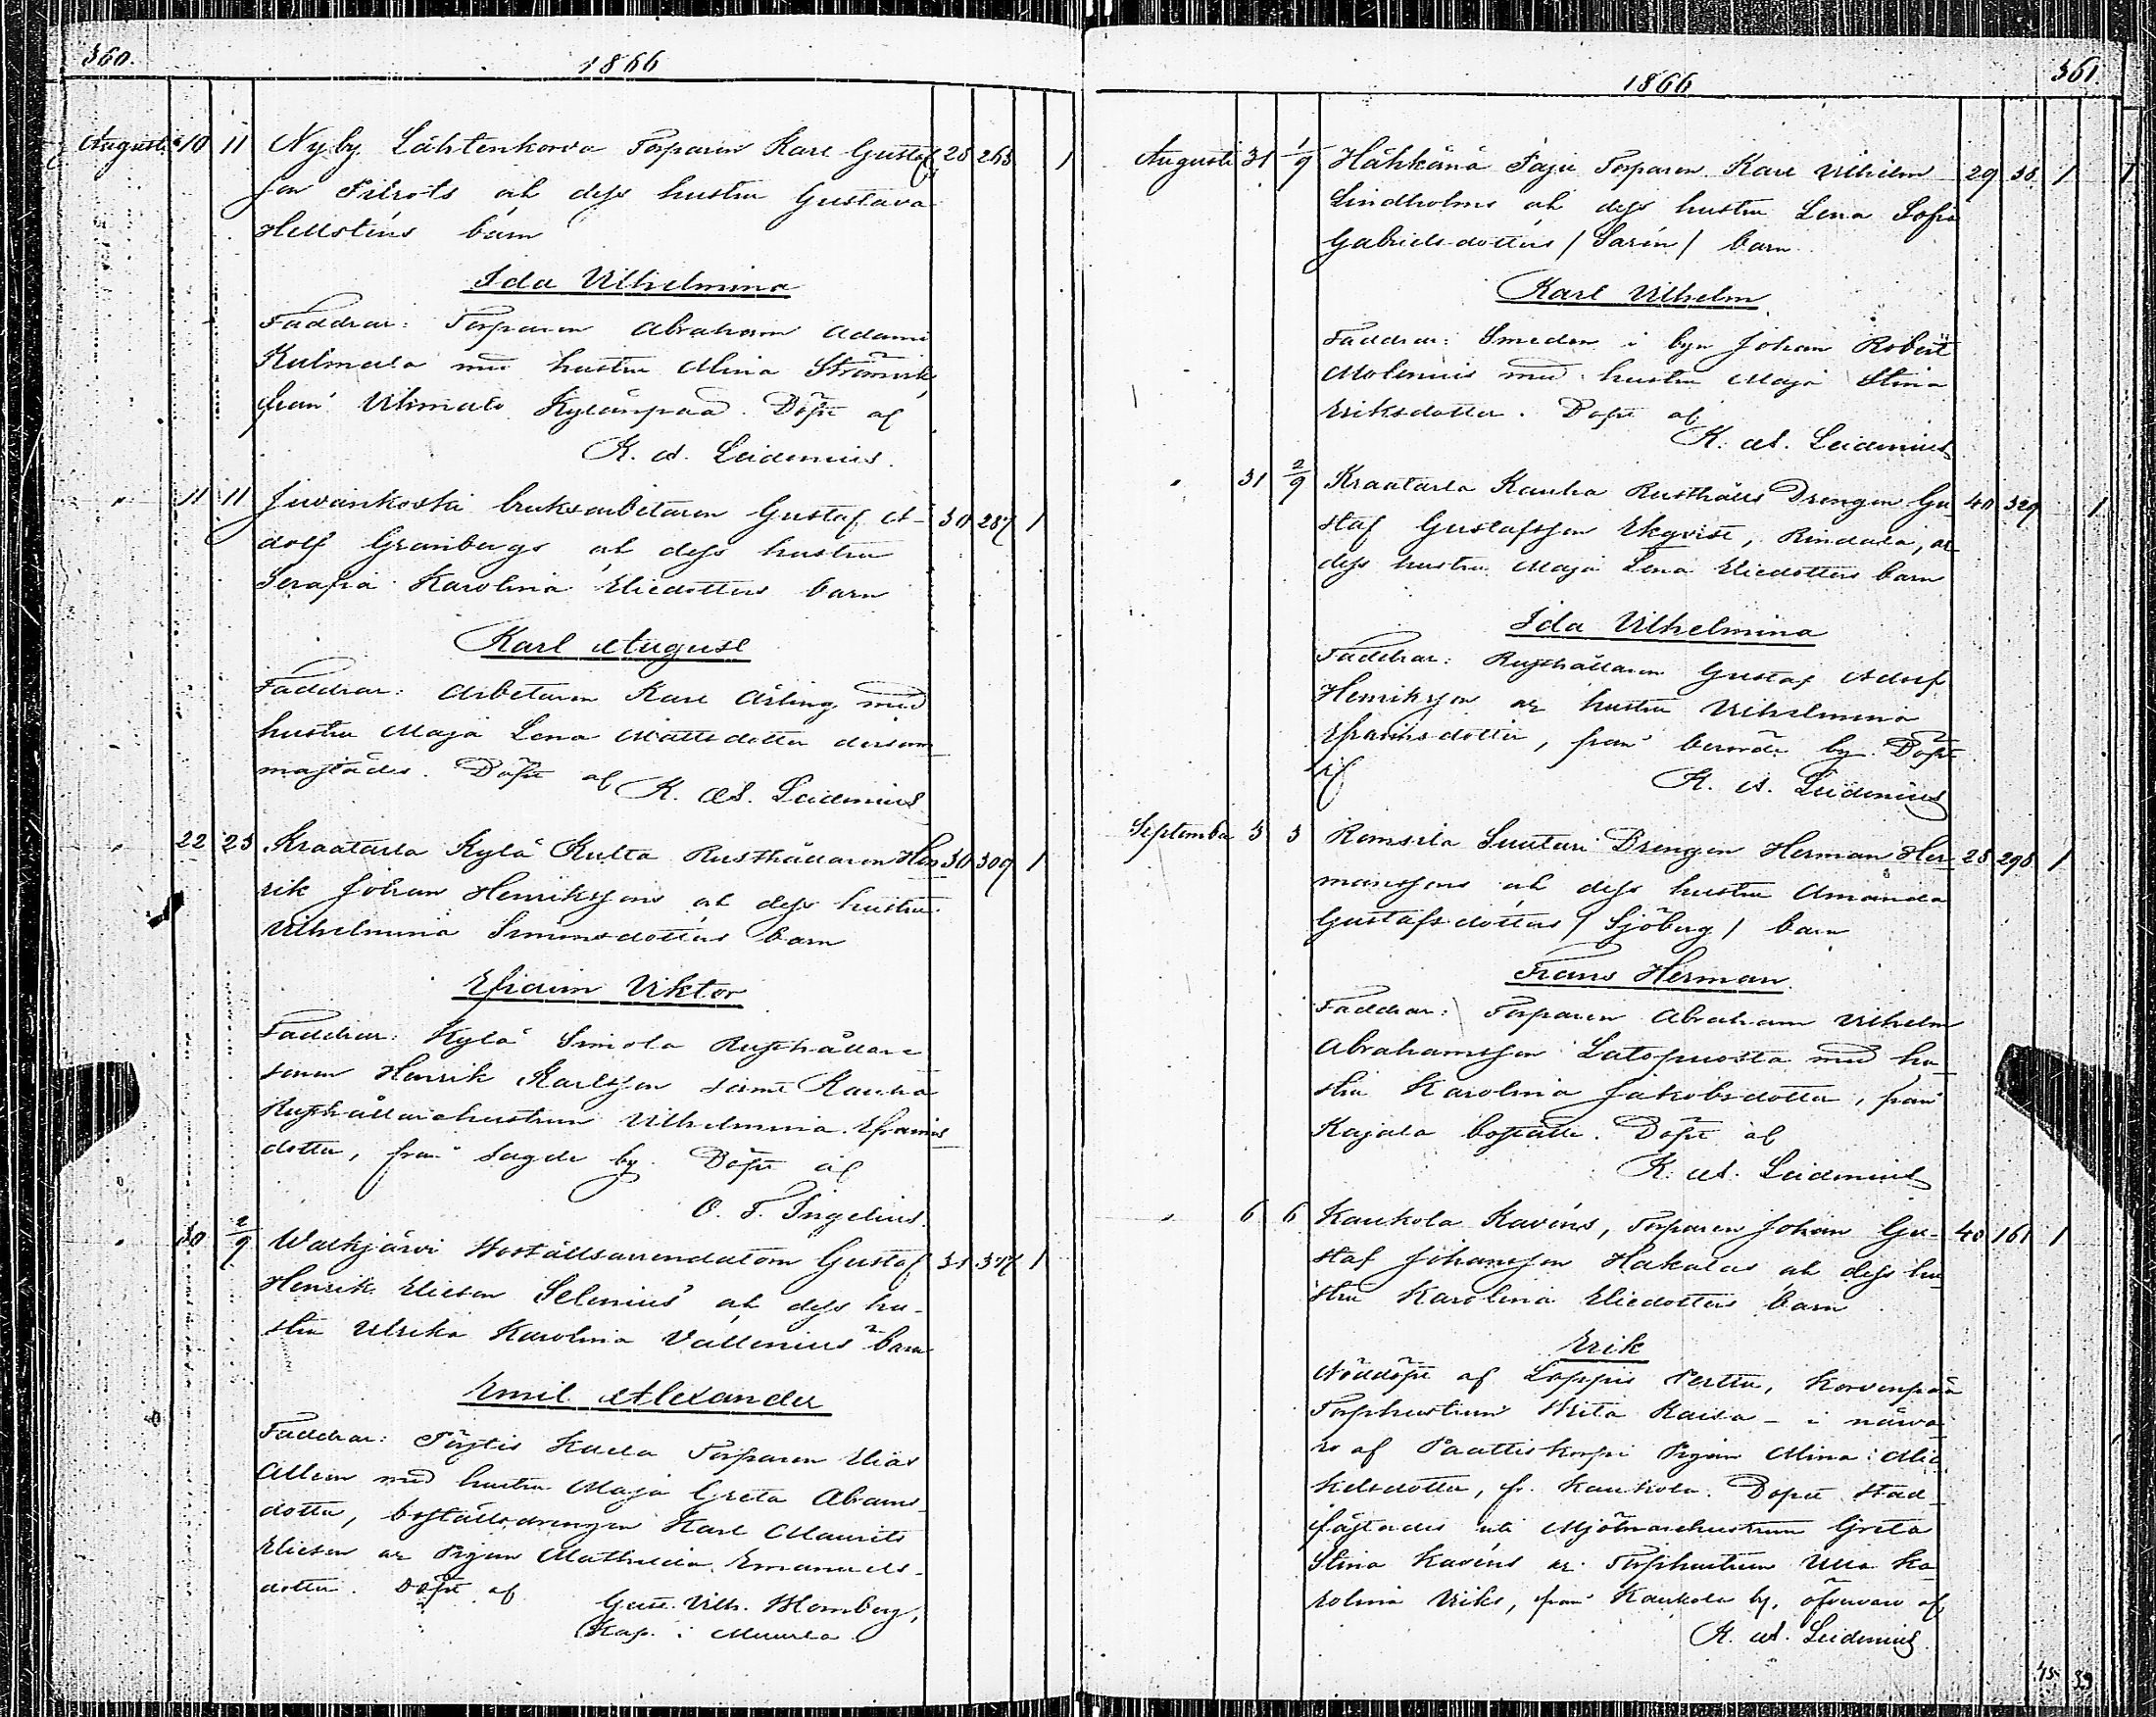 360.
1866
Augusti 10 11 Nyby Lähtenkorva Torparen Karl Gustaf 28 263 1
son Pilrots och dess hustru Gustava
Hellsténs barn
Ida Vilhelmina
Faddrar: Torparen Abraham Adami
Kulmala med hustru Mina Strömvik
från Vihmalo Kylänpää. Döpt af
K. A. Leidenius.
" 11 11 Juvankoski bruksarbetaren Gustaf A- 30 287 1
dolf Granbergs och dess hustru
Serafia Karolina Eliedotters barn
Karl August
Faddrar: Arbetaren Karl Arling med
hustru Maja Lena Mattsdotter dersam
mastädes. Döpt af K. A. Leidenius
" 22 23 Kraatarla Kylä Kulta Rusthållaren Hen 30 309 1
rik Johan Henrikssons och dess hustru
Vilhelmina Simonsdotters barn
Efraim Viktor
Faddrar: Kylä Simola Rusthållare
sonen Henrik Karlsson samt Kauha
Rusthållarehustrun Vilhelmina Efraims
dotter, från sagde by. Döpt af
O. F. Ingelius.
" 30 2/9 Walkjärvi Boställsarrendatorn Gustaf 31 317 1
Henrik Elieson Selenius' och dess hu-
stru Ulrika Karolina Vallenius' barn
Emil Alexander
Faddrar: Pöytis Torparen Elias
Allen med hustru Maja Greta Abrams
dotter, boställsdrengen Karl Maurits
Elieson o. Pigan Mathilda Emanuels-
dotter. Döpt af
Gust. Vilh. Blomberg,
Kap. i Muurla
361.
1866
Augusti 31 1/9 Hähkänä Paju Torparen Karl Vilhelm 29 38 1
Lindholms och dess hustru Lena Sofia
Gabrielsdotters / Sarin / barn
Karl Vilhelm
Faddrar: Smeden i byn Johan Robert
Molenius med hustru Maja Stina
Eriksdotter. Döpt af
K. A. Leidenius
" 31 2/9 Kraatarla Kauha Rusthålls Drengen Gu 40 329 1
staf Gustafsson Ekqvist, Rindala, o.
dess hustru Maja Lena Eliedotters barn
Ida Vilhelmina
Faddrar: Rusthållaren Gustaf Adolf
Henriksson o. hustru Vilhelmina
Efraimsdotter, från berörde by. Döpt
af
K. A. Leidenius
September 3 3 Romsila Suutari Drengen Herman Her- 28 298 1
manssons och dess hustru Amanda
Gustafsdotters / Sjöberg / barn
Frans Herman
Faddrar: Torparen Abraham Vilhelm
Abrahamsson Latopuosta med hu-
stru Karolina Jakobsdotter, från
Kajala boställe. Döpt af
K. A. Leidenius
" 6 6 Kaukola Kavéns, Torparen Johan Gu- 40 161 1
staf Johansson Hakalas och dess hu
stru Karolina Eliedotters barn
Erik
Nöddöpt af Loppis Perttu, Korvenpää
Torphustrun Brita Kaisa - i närva
ro af Paattiskorpi Pigan Mina Mic
kelsdotter, fr. Kaukola. Dopet stad
fästades uti Mjölnarehustrun Greta
Stina Kavéns o. Torphustrun Ulla Ka
rolina Viks, från Kaukola by, öfvervaro af
K. A. Leidenius
45 39